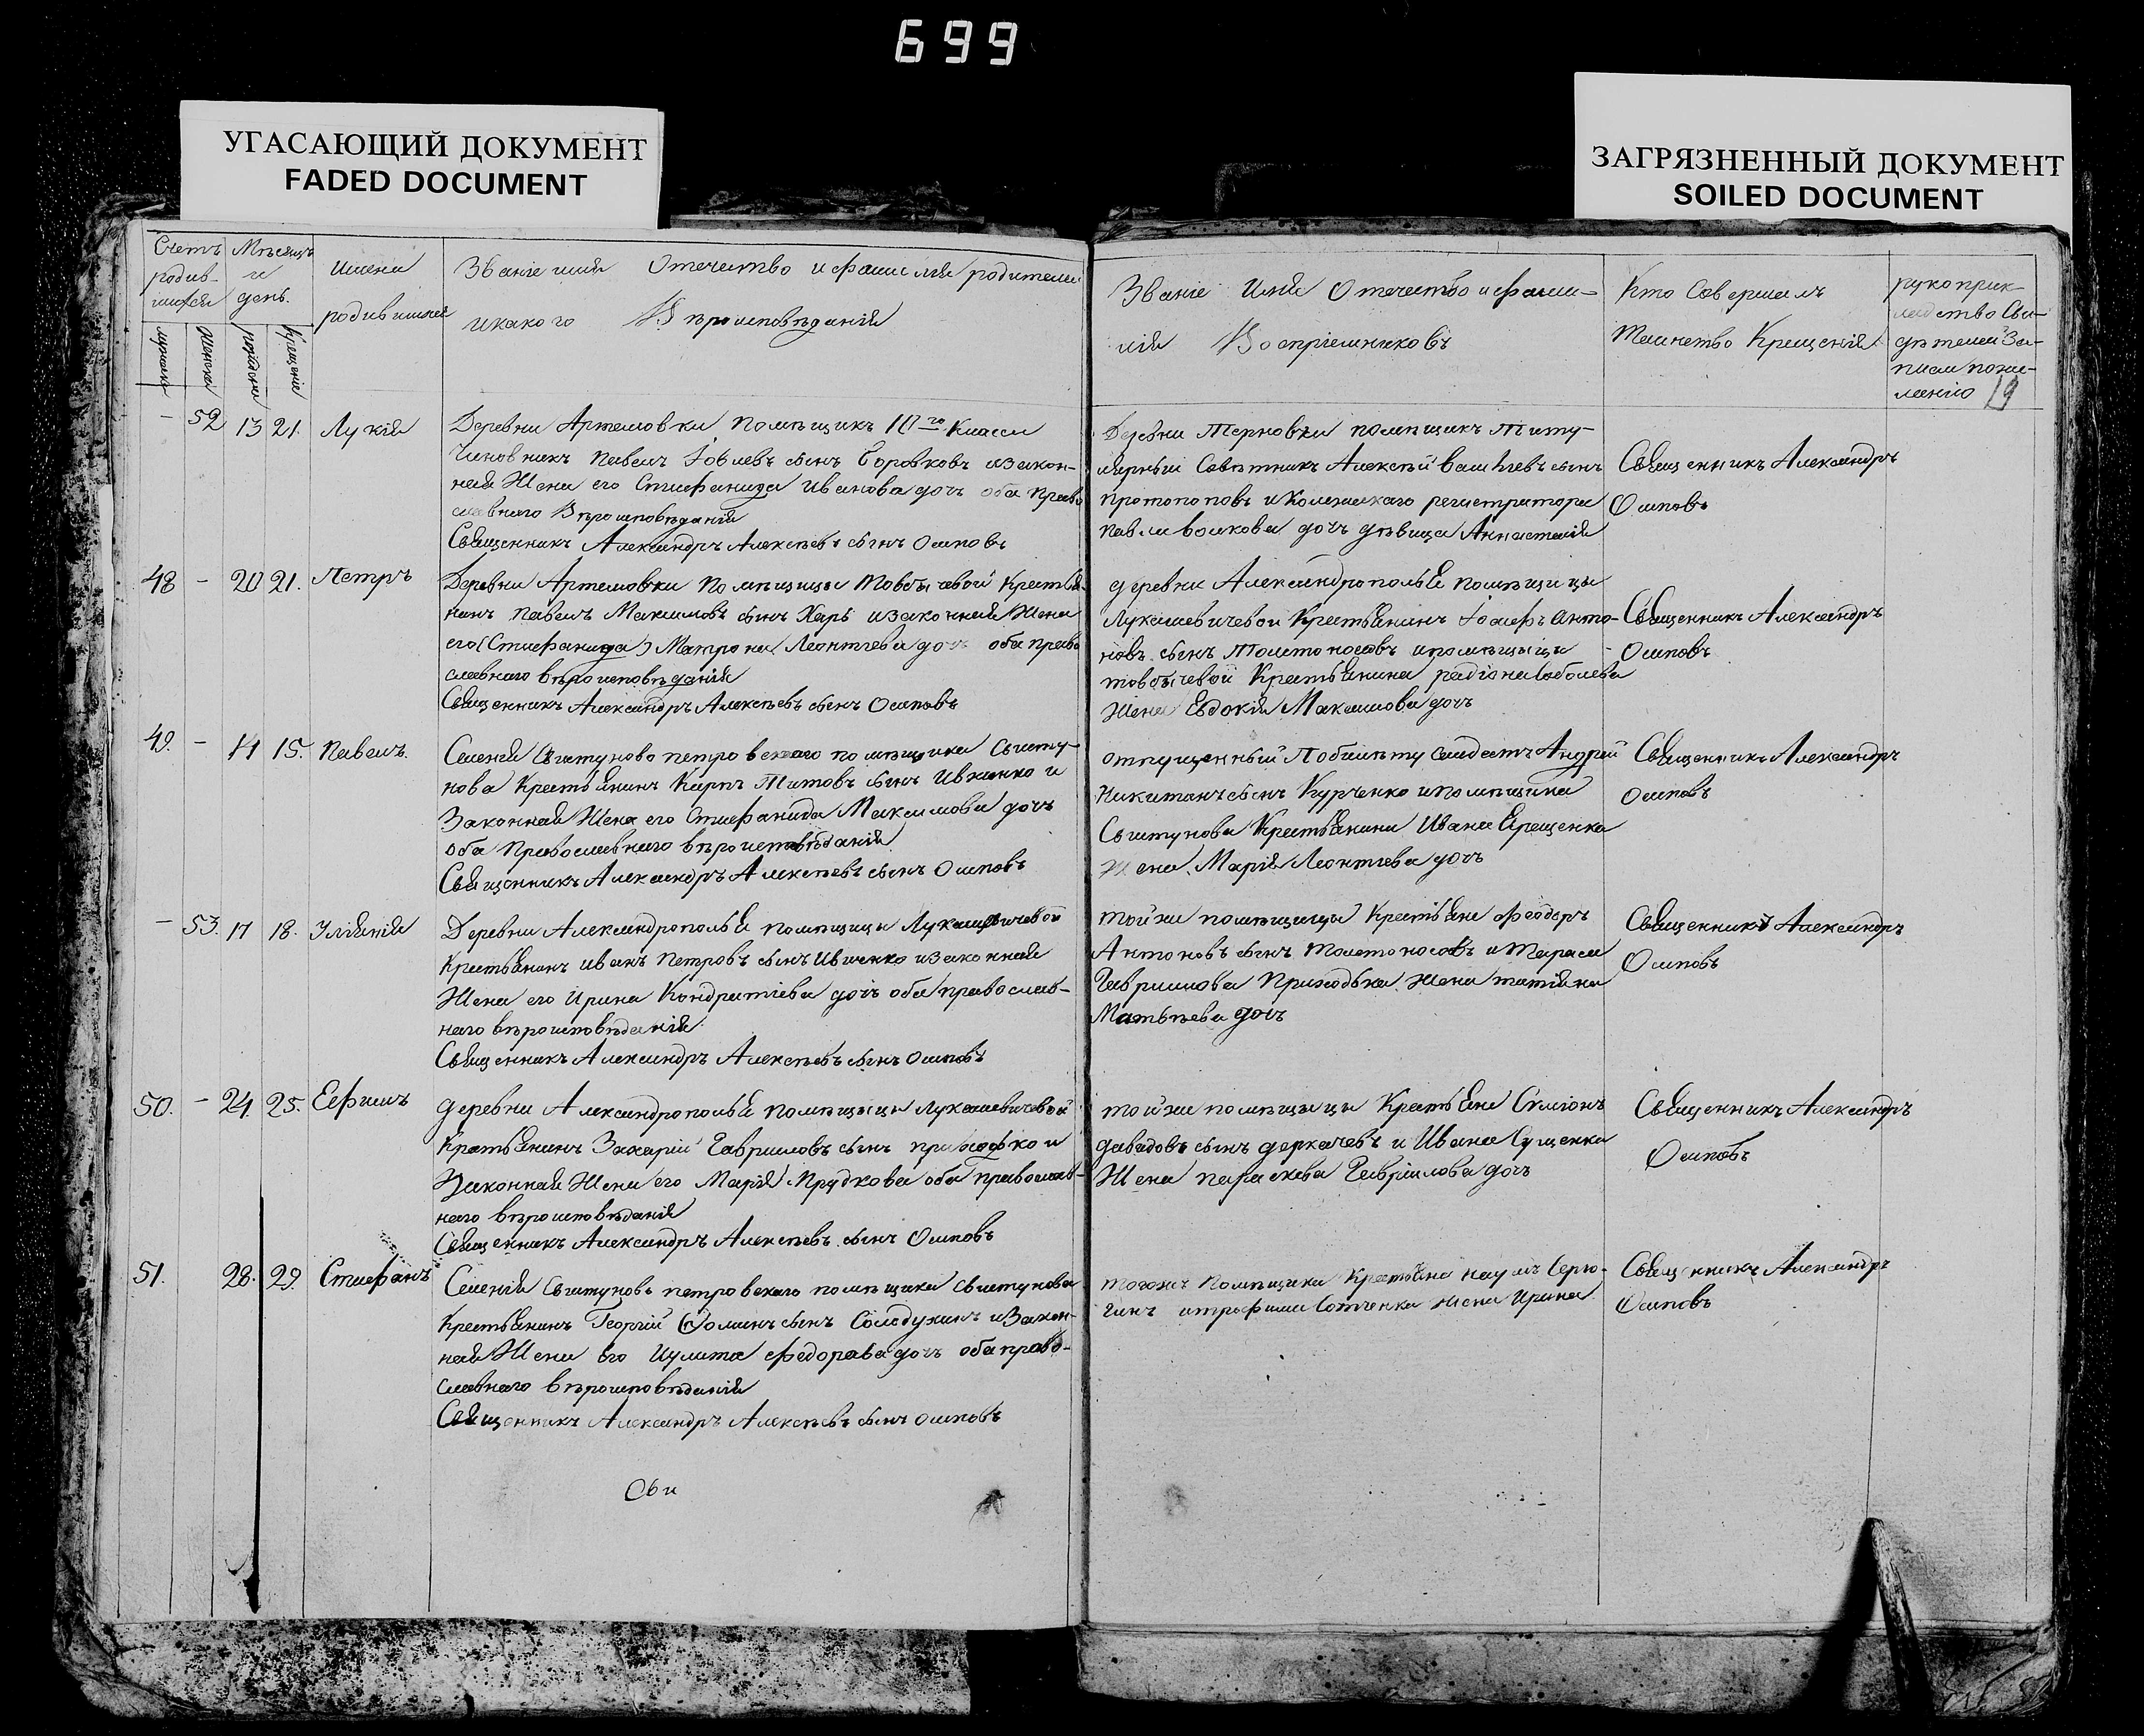 699
УГАСАЮЩИЙ ДОКУМЕНТ
FADED DOCUMENT
ЗАГРЯЗНЕННЫЙ ДОКУМЕНТ
SOILED DOCUMENT
Счетъ
родив-
шихся
Мѣсяцъ
и
день.
Имена
родившихся
Званіе имя Отечество и фамилія родителей
и какого Вѣроисповѣданія
Званіе Имя Отечество и фами-
лія Воспріемниковъ
Кто Совершалъ
Таинство Крещенія
рукоприк-
ладство Сви-
дѣтелей За-
писи по же-
ланію 19
женска
рожденія
Крещенія
– 52 13 21. Лукія
Деревни Артемовки помѣщикъ 10го Класса
Чиновникъ Павелъ Іовлевъ сынъ Боровковъ и закон-
ная Жена его Стефанида Иванова дочь оба Право
славнаго Вѣроисповѣданія
Священникъ Александръ Алексѣевъ сынъ Осиповъ
Деревни Терновки помѣщикъ Титу-
лярный Совѣтникъ Алексѣй сынъ
Протопоповъ и Колежскаго регистратора
Павла Волкова дочь дѣвица Анастасія
Священникъ Александръ
Осиповъ
48 – 20 21. Петръ
Деревни Артемовки Помѣщицы Товбычевой Крестья
нинъ Павелъ Максимовъ сынъ и законная Жена
его (Стефанида) Матрона Леонтіева дочь оба право
славнаго вѣроисповѣданія
Священникъ Александръ Алексѣевъ сынъ Осиповъ
деревни Александрополья помѣщицы
Лукашевичевой Крестьянинъ Іосифъ Анто-
новъ сынъ Толстоносовъ и помѣщицы
товбычевой Крестьянина радіона
Жена Евдокія Максимова дочь
Священникъ Александръ
Осиповъ
49. – 14 15. Павелъ.
Селенія Свистуново петровскаго помѣщика Свисту-
нова Крестьянинъ Карпъ Титовъ сынъ Ивженко и
Законная Жена его Стефанида Максимова дочь
оба Православнаго вѣроисповѣданія
Священникъ Александръ Алексѣевъ сынъ Осиповъ
отпущенный По билѣту Солдатъ Андрей
сынъ Курченко и помѣщика
Свистунова Крестьянина Ивана Ерещенка
Жена Марія Леонтіева дочь
Священникъ Александръ
Осиповъ
– 53. 17 18. Уліянія
Деревни Александрополья помѣщицы Лукашевичевой
Крестьянинъ иванъ Петровъ сынъ Ивженко и законная
Жена его Ирина Кондратіева дочь оба православ-
наго вѣроисповѣданія
Священникъ Александръ Алексѣевъ сынъ Осиповъ
той же помѣщицы Крестьяне Феодоръ
Антоновъ сынъ Толстоносовъ и Тараса
Гаврилова Приходька жена татіяна
Матвѣева дочь
Священникъ Александръ
Осиповъ
50. – 24 25. Еефимъ
деревни Александрополья помѣщицы Лукашевичевой
Крестьянинъ Захарій Гавриловъ сынъ приходько и
Законная Жена его Марія Прудкова оба православ-
наго вѣроисповѣданія
Священникъ Александръ Алексѣевъ сынъ Осиповъ
той же помѣщицы Крестьяне Сѵміонъ
давидовъ сынъ деркачевъ и Ивана Сущенка
Жена параскева Гавріилова дочь
Священникъ Александръ
Осиповъ
51. 28. 29. Стефанъ
Селенія Свистуново петровскаго помѣщика Свистунова
Крестьянинъ Георгій Ѳоминъ сынъ Солодухинъ и Закон-
ная Жена Его Иулита Федорова дочь оба право-
славнаго вѣроисповѣданія
Священникъ Александръ Алексѣевъ сынъ Осиповъ
тогожъ Помѣщика Крестьяне наумъ Серю-
гинъ жена Ирина
Священникъ Александръ
Осиповъ